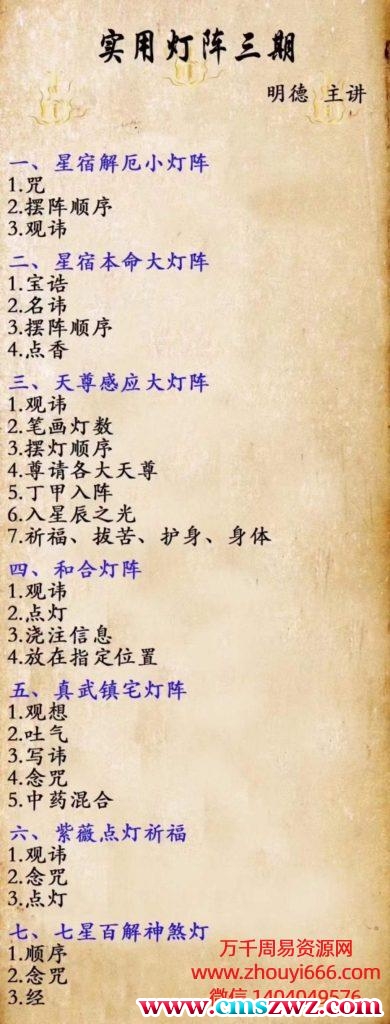 实用灯阵三期
明德 主讲
一、星宿解厄小灯阵
1.咒
2.摆阵顺序
3.观讳
二、星宿本命大灯阵
1.宝诰
2.名讳
3.摆阵顺序
4.点香
三、天尊感应大灯阵
1.观讳
2.笔画灯数
3.摆灯顺序
4.尊请各大天尊
5.丁甲入阵
6.入星辰之光
7.祈福、拔苦、护身、身体
四、和合灯阵
1.观讳
2.点灯
3.浇注信息
4.放在指定位置
五、真武镇宅灯阵
1.观想
2.吐气
3.写讳
4.念咒
5.中药混合
六、紫薇点灯祈福
1.观讳
2.念咒
3.点灯
七、七星百解神煞灯
1.顺序
2.念咒
3.经
万千周易资源网
www.zhouyi666.com
微信 1404049576
www.cmszwz.com